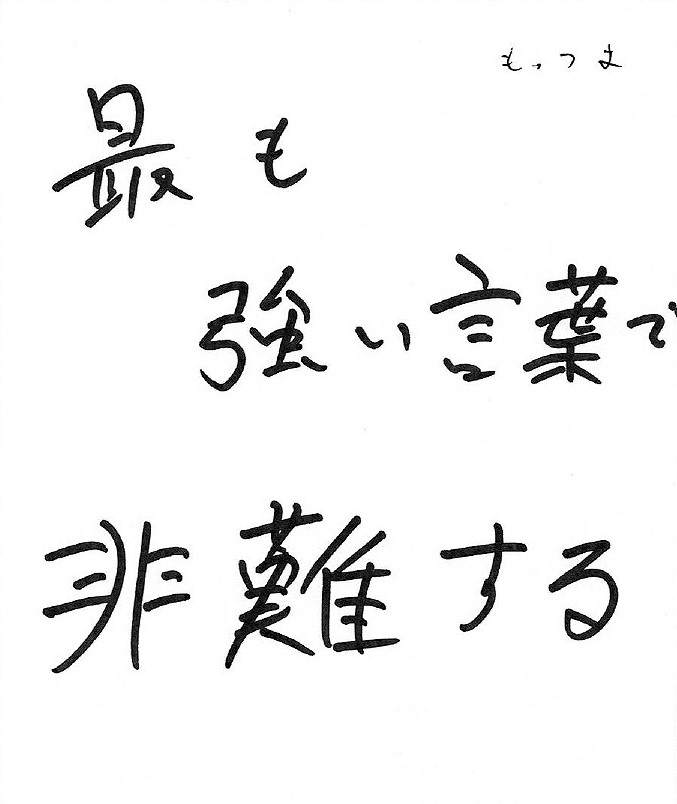 もっつま
最も
強い言葉で
非難する